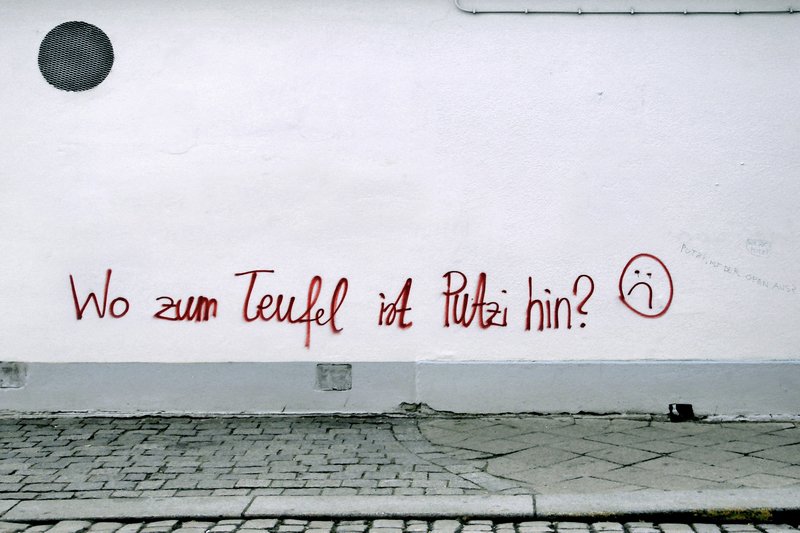 Wo zum Teufel ist Putzi hin?
PUTZI, IST DER OFEN AUS?